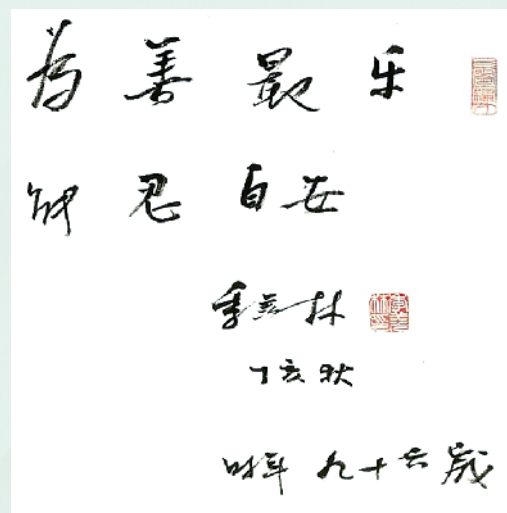 为善最乐
能忍自安
季羡林
丁亥秋
时年九十六岁